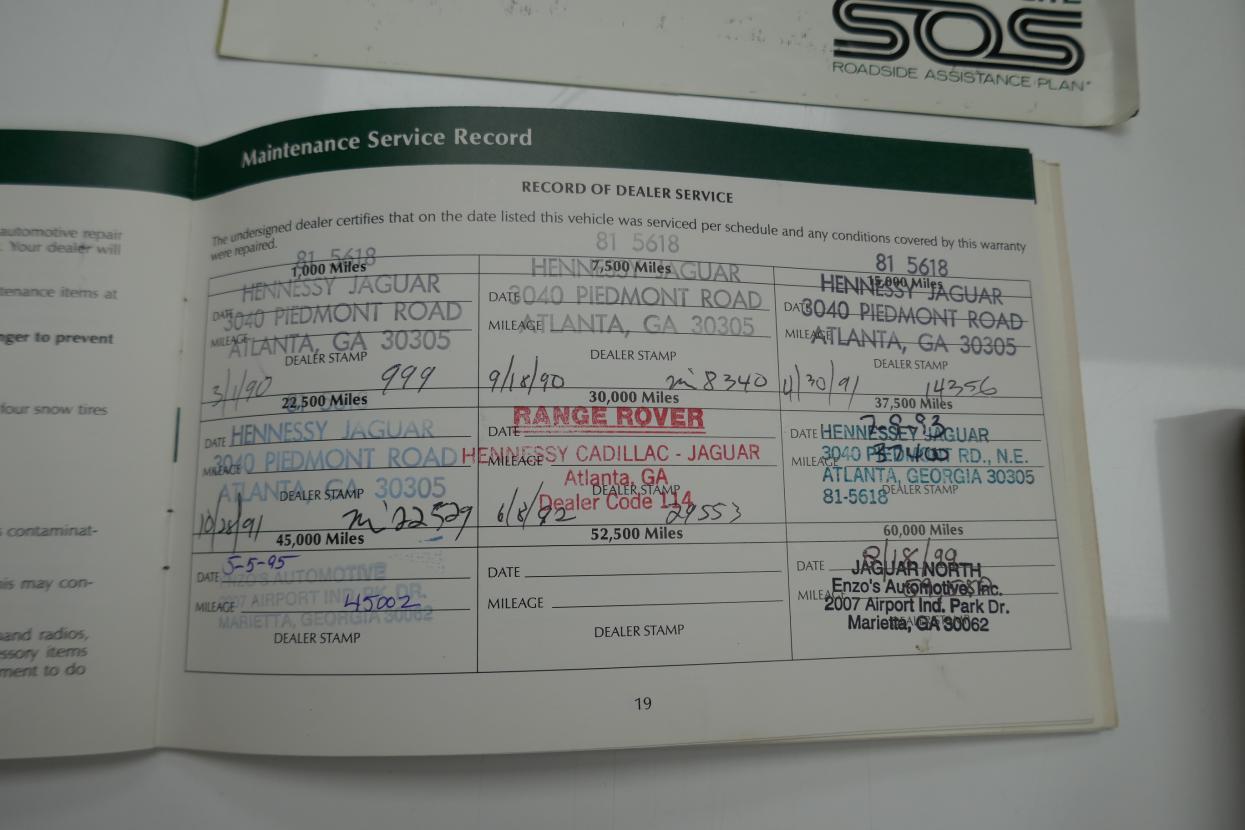 SOS
ROADSIDE ASSISTANCE PLAN
automotive repair
. Your dealer will
tenance items at
nger to prevent
four snow tires
s contaminat-
his may con-
and radios,
ssory items
ment to do
Maintenance Service Record
RECORD OF DEALER SERVICE
The undersigned dealer certifies that on the date listed this vehicle was serviced per schedule and any conditions covered by this warranty
were repaired.
81 5618
1,000 Miles
HENNESSY JAGUAR
DATE
3040 PIEDMONT ROAD
MILEAGE
ATLANTA, GA 30305
DEALER STAMP
3/1/90 999
81 5618
7,500 Miles
HENNESSY JAGUAR
DATE
3040 PIEDMONT ROAD
MILEAGE
ATLANTA, GA 30305
DEALER STAMP
9/18/90 m 8340
81 5618
15,000 Miles
HENNESSY JAGUAR
DATE
3040 PIEDMONT ROAD
MILEAGE
ATLANTA, GA 30305
DEALER STAMP
/30/91 14356
22,500 Miles
DATE
HENNESSY JAGUAR
MILEAGE
3040 PIEDMONT ROAD
ATLANTA, GA 30305
DEALER STAMP
10/28/91 m 22529
30,000 Miles
RANGE ROVER
DATE
HENNESSY CADILLAC - JAGUAR
MILEAGE
Atlanta, GA
DEALER STAMP
Dealer Code 114
6/8/92 29553
37,500 Miles
7-8-93
DATE
HENNESSEY JAGUAR
MILEAGE
3040 PIEDMONT RD., N.E.
37400
ATLANTA, GEORGIA 30305
81-5618
DEALER STAMP
45,000 Miles
5-5-95
DATE
ENZO'S AUTOMOTIVE
2007 AIRPORT IND. PK. DR.
MILEAGE
45002
MARIETTA, GEORGIA 30062
DEALER STAMP
52,500 Miles
DATE
MILEAGE
DEALER STAMP
60,000 Miles
/18/99
DATE
JAGUAR NORTH
MILEAGE
Enzo's Automotive, Inc.
2007 Airport Ind. Park Dr.
Marietta, GA 30062
19